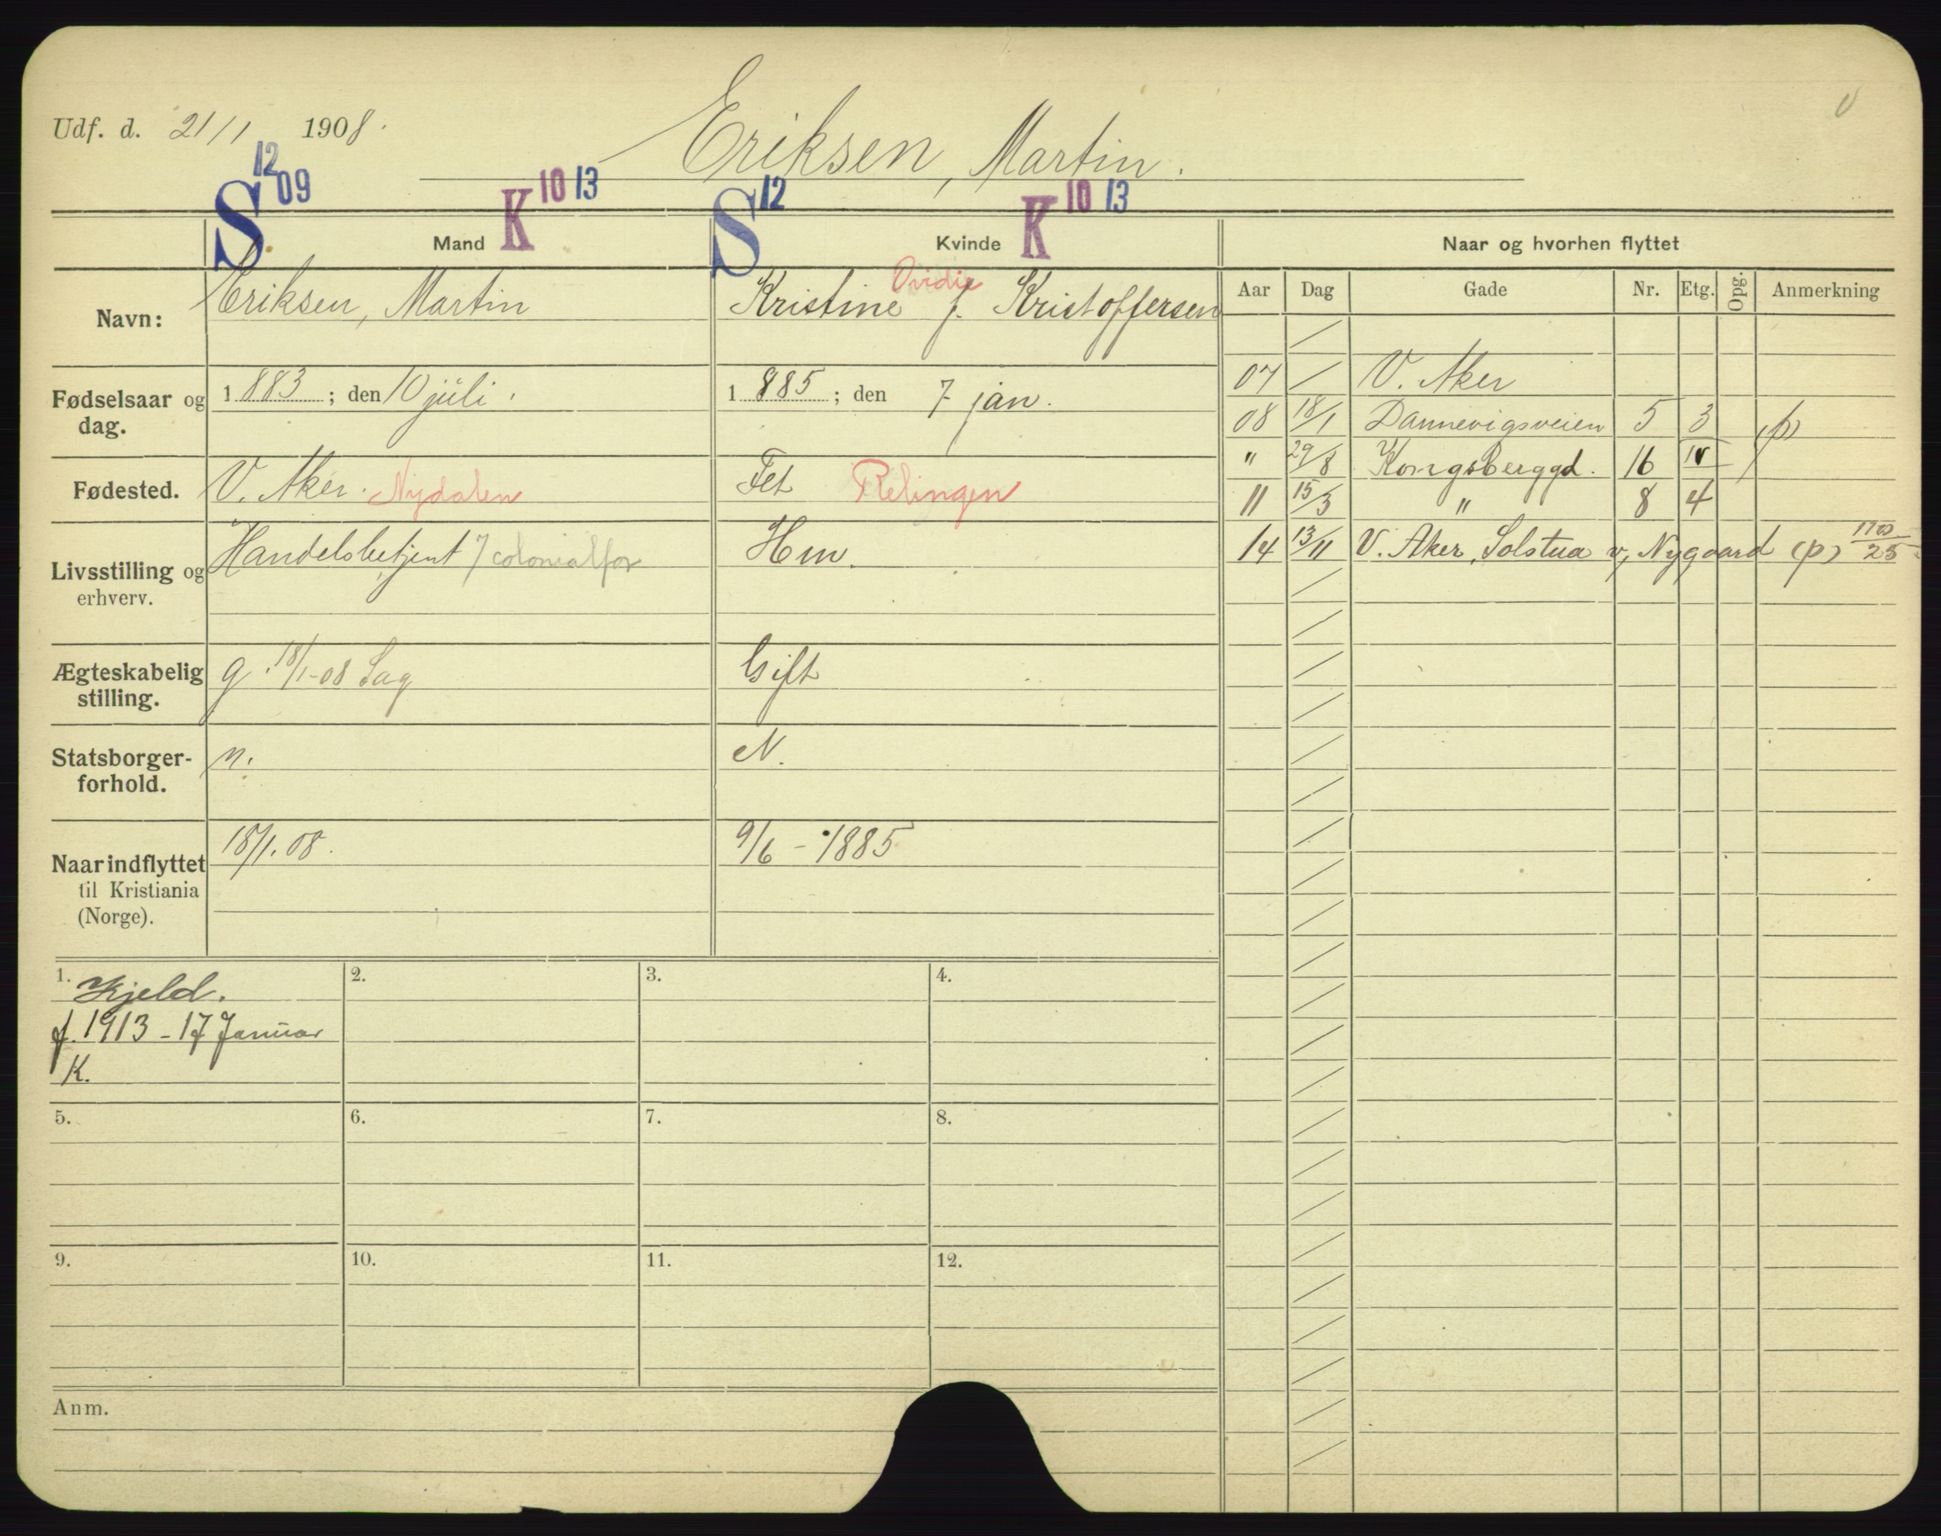 Udf. d. 21/1 1908.
Eriksen, Martin.
S 12 09 K 10 13 S 12 K 10 13
Mand Kvinde Naar og hvorhen flyttet
Aar Dag Gade Nr. Etg. Opg. Anmerkning
Navn: Eriksen, Martin
Ovidie
Kristine f. Kristoffersen
Fødselsaar og dag. 1883; den 10 juli. 1885; den 7 jan.
Fødested. V. Aker. Nydalen Fet Relingen
Livsstilling og erhverv. Handelsbetjent / colonialfor Hm.
Ægteskabelig stilling. g. 18/1-08 Sag Gift
Statsborger-
forhold. n. N.
Naar indflyttet til Kristiania (Norge). 18/1.08. 9/6 - 1885
07 / V. Aker
08 18/1 Dannevigsveien 5 3 (p)
" 29/8 Kongsberggd. 16 IV
11 15/3 " 8 4
14 13/11 V. Aker, Solstua v, Nygaard (p) 1700/25
1. Kjeld.
f. 1913 - 17 Januar
K.
2.
3.
4.
5.
6.
7.
8.
9.
10.
11.
12.
Anm.